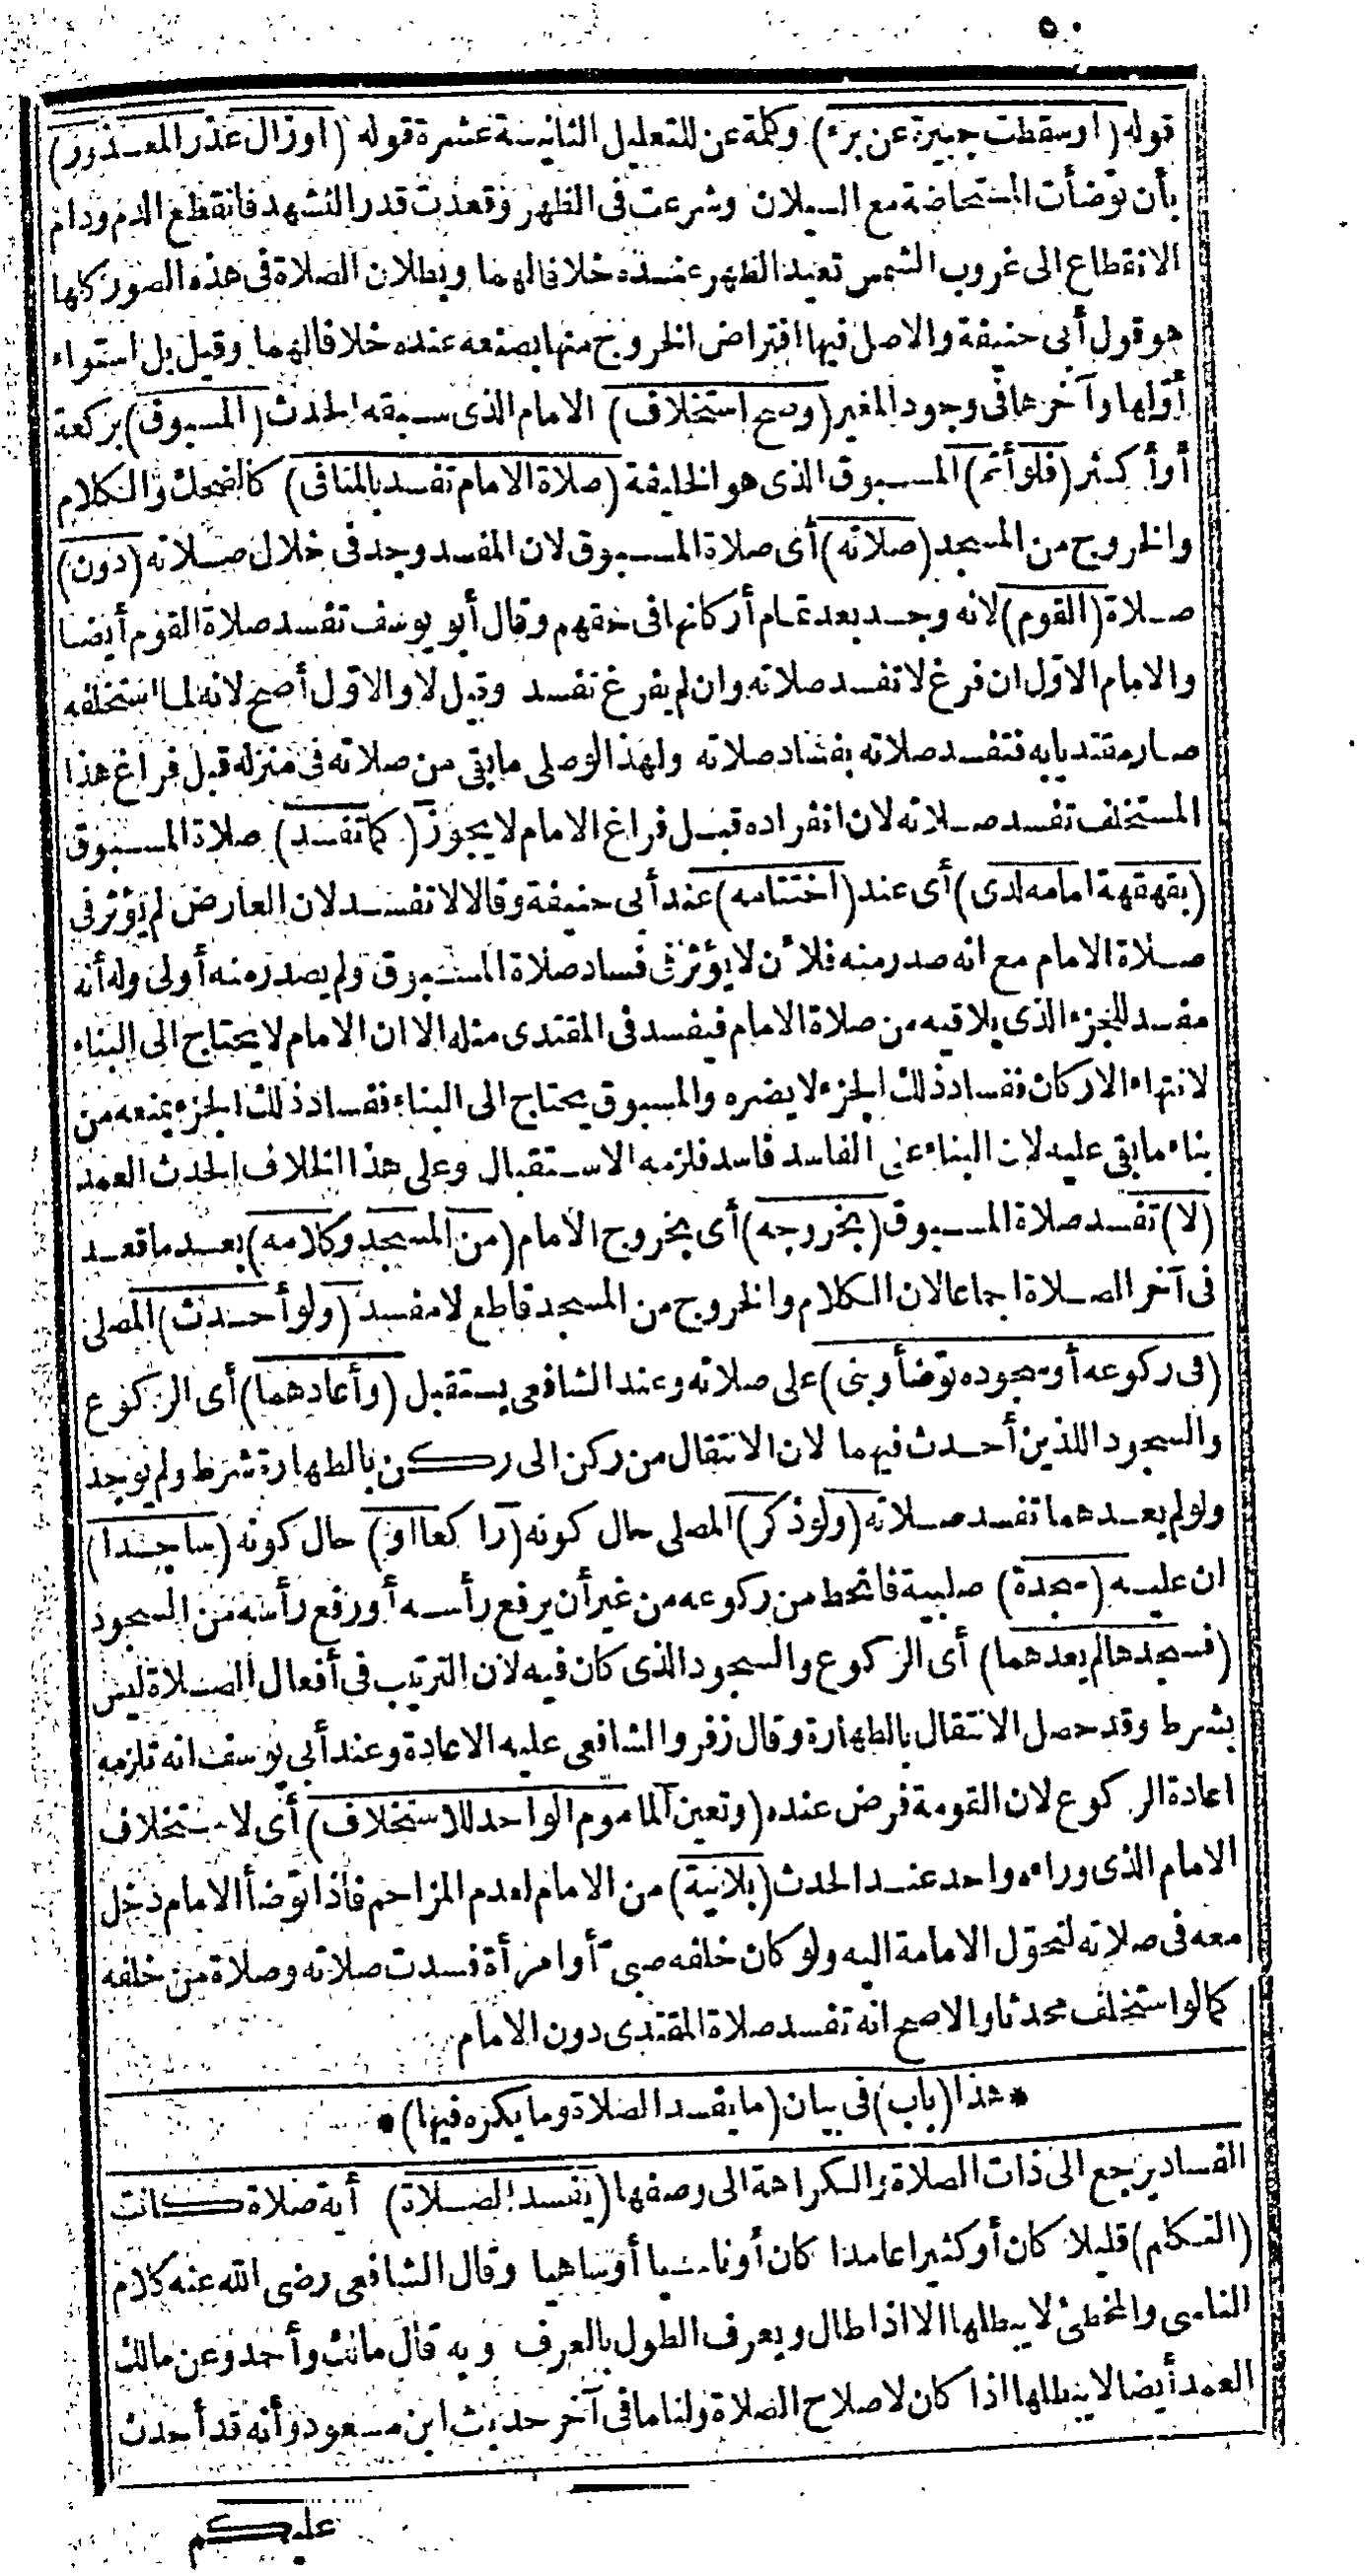 ٥٠
قوله (أوسقطت جبيرة عن برء) وكلمة عن للتعليل الثانية عشرة قوله (أو زال عذر المعذور)
بأن توضأت المستحاضة مع السيلان وشرعت فى الظهر وقعدت قدر التشهد فانقطع الدم ودام
الانقطاع الى غروب الشمس تعيد الظهر عنده خلافا لهما وبطلان الصلاة فى هذه الصور كلها
هو قول أبى حنيفة والاصل فيها افتراض الخروج منها بصنعه عنده خلافا لهما وقيل بل استواء
أولها وآخرها فى وجود المغير (وصح استخلاف) الامام الذى سبقه الحدث (المسبوق) بركعة
أو أكثر (فلو أتم) المسبوق الذى هو الخليفة (صلاة الامام تفسد بالمنافى) كالضحك والكلام
والخروج من المسجد (صلاته) أى صلاة المسبوق لان المفسد وجد فى خلال صلاته (دون)
صلاة (القوم) لانه وجد بعد تمام أركانها فى حقهم وقال أبو يوسف تفسد صلاة القوم أيضا
والامام الاول ان فرغ لا تفسد صلاته وان لم يفرغ تفسد وقيل لا والاول أصح لانه لما استخلفه
صار مقتديا به فتفسد صلاته بفساد صلاته ولهذا لو صلى ما بقى من صلاته فى منزله قبل فراغ هذا
المستخلف تفسد صلاته لان انفراده قبل فراغ الامام لا يجوز (كما تفسد) صلاة المسبوق
(بقهقهة امامه لدى) أى عند (اختتامه) عند أبى حنيفة وقالا لا تفسد لان العارض لم يؤثر فى
صلاة الامام مع انه صدر منه فلأن لا يؤثر فى فساد صلاة المسبوق ولم يصدر منه أولى وله أنه
مفسد للجزء الذى يلاقيه من صلاة الامام فيفسد فى المقتدى مثله الا ان الامام لا يحتاج الى البناء
لانتهاء الاركان ففساد ذلك الجزء لا يضره والمسبوق يحتاج الى البناء ففساد ذلك الجزء يمنعه من
بناء ما بقى عليه لان البناء على الفاسد فاسد فلزمه الاستقبال وعلى هذا الخلاف الحدث العمد
(لا) تفسد صلاة المسبوق (بخروجه) أى بخروج الامام (من المسجد وكلامه) بعد ما قعد
فى آخر الصلاة اجماعا لان الكلام والخروج من المسجد قاطع لا مفسد (ولو أحدث) المصلى
(فى ركوعه أو سجوده توضأ وبنى) على صلاته وعند الشافعى يستقبل (وأعادهما) أى الركوع
والسجود اللذين أحدث فيهما لان الانتقال من ركن الى ركن بالطهارة شرط ولم يوجد
ولو لم يعدهما تفسد صلاته (ولو ذكر) المصلى حال كونه (راكعا أو) حال كونه (ساجدا)
ان عليه (سجدة) صلبية فانحط من ركوعه من غير أن يرفع رأسه أو رفع رأسه من السجود
(فسجدها لم يعدهما) أى الركوع والسجود الذى كان فيه لان الترتيب فى أفعال الصلاة ليس
بشرط وقد حصل الانتقال بالطهارة وقال زفر والشافعى عليه الاعادة وعند أبى يوسف انه تلزمه
اعادة الركوع لان القومة فرض عنده (وتعين المأموم الواحد للاستخلاف) أى لاستخلاف
الامام الذى وراءه واحد عند الحدث (بلانية) من الامام لعدم المزاحم فاذا توضأ الامام دخل
معه فى صلاته لتحول الامامة اليه ولو كان خلفه صبى أو امرأة فسدت صلاته وصلاة من خلفه
كما لو استخلف محدثا والاصح انه تفسد صلاة المقتدى دون الامام
* هذا (باب) فى بيان (ما يفسد الصلاة وما يكره فيها) *
الفساد يرجع الى ذات الصلاة والكراهة الى وصفها (يفسد الصلاة) أية صلاة كانت
(التكلم) قليلا كان أو كثيرا عامدا كان أو ناسيا أو ساهيا وقال الشافعى رضى الله عنه كلام
الناسى والمخطئ لا يبطلها الا اذا طال ويعرف الطول بالعرف وبه قال مالك وأحمد وعن مالك
العمد أيضا لا يبطلها اذا كان لاصلاح الصلاة ولنا ما فى آخر حديث ابن مسعود وأنه قد أحدث
عليكم